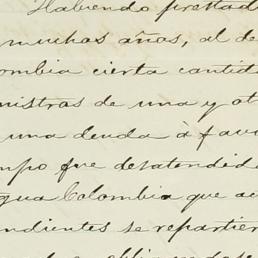 Habiendo prestad
muchos años, al de
ombia cierta cantid
nistros de una y ot
una deuda à favo
mpo fue desatendid
gua Colombia que a
ndientes se repartier